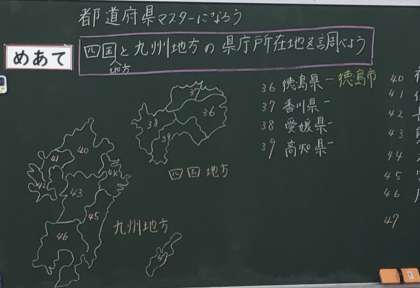 都道府県マスターになろう
めあて
四国と九州地方の県庁所在地を調べよう
地方
36 徳島県ー徳島市
37 香川県ー
38 愛媛県ー
39 高知県ー
40
41
42
43
44
45
46
47
37
36
38
39
四国地方
40
41
42
44
43
45
46
47
九州地方